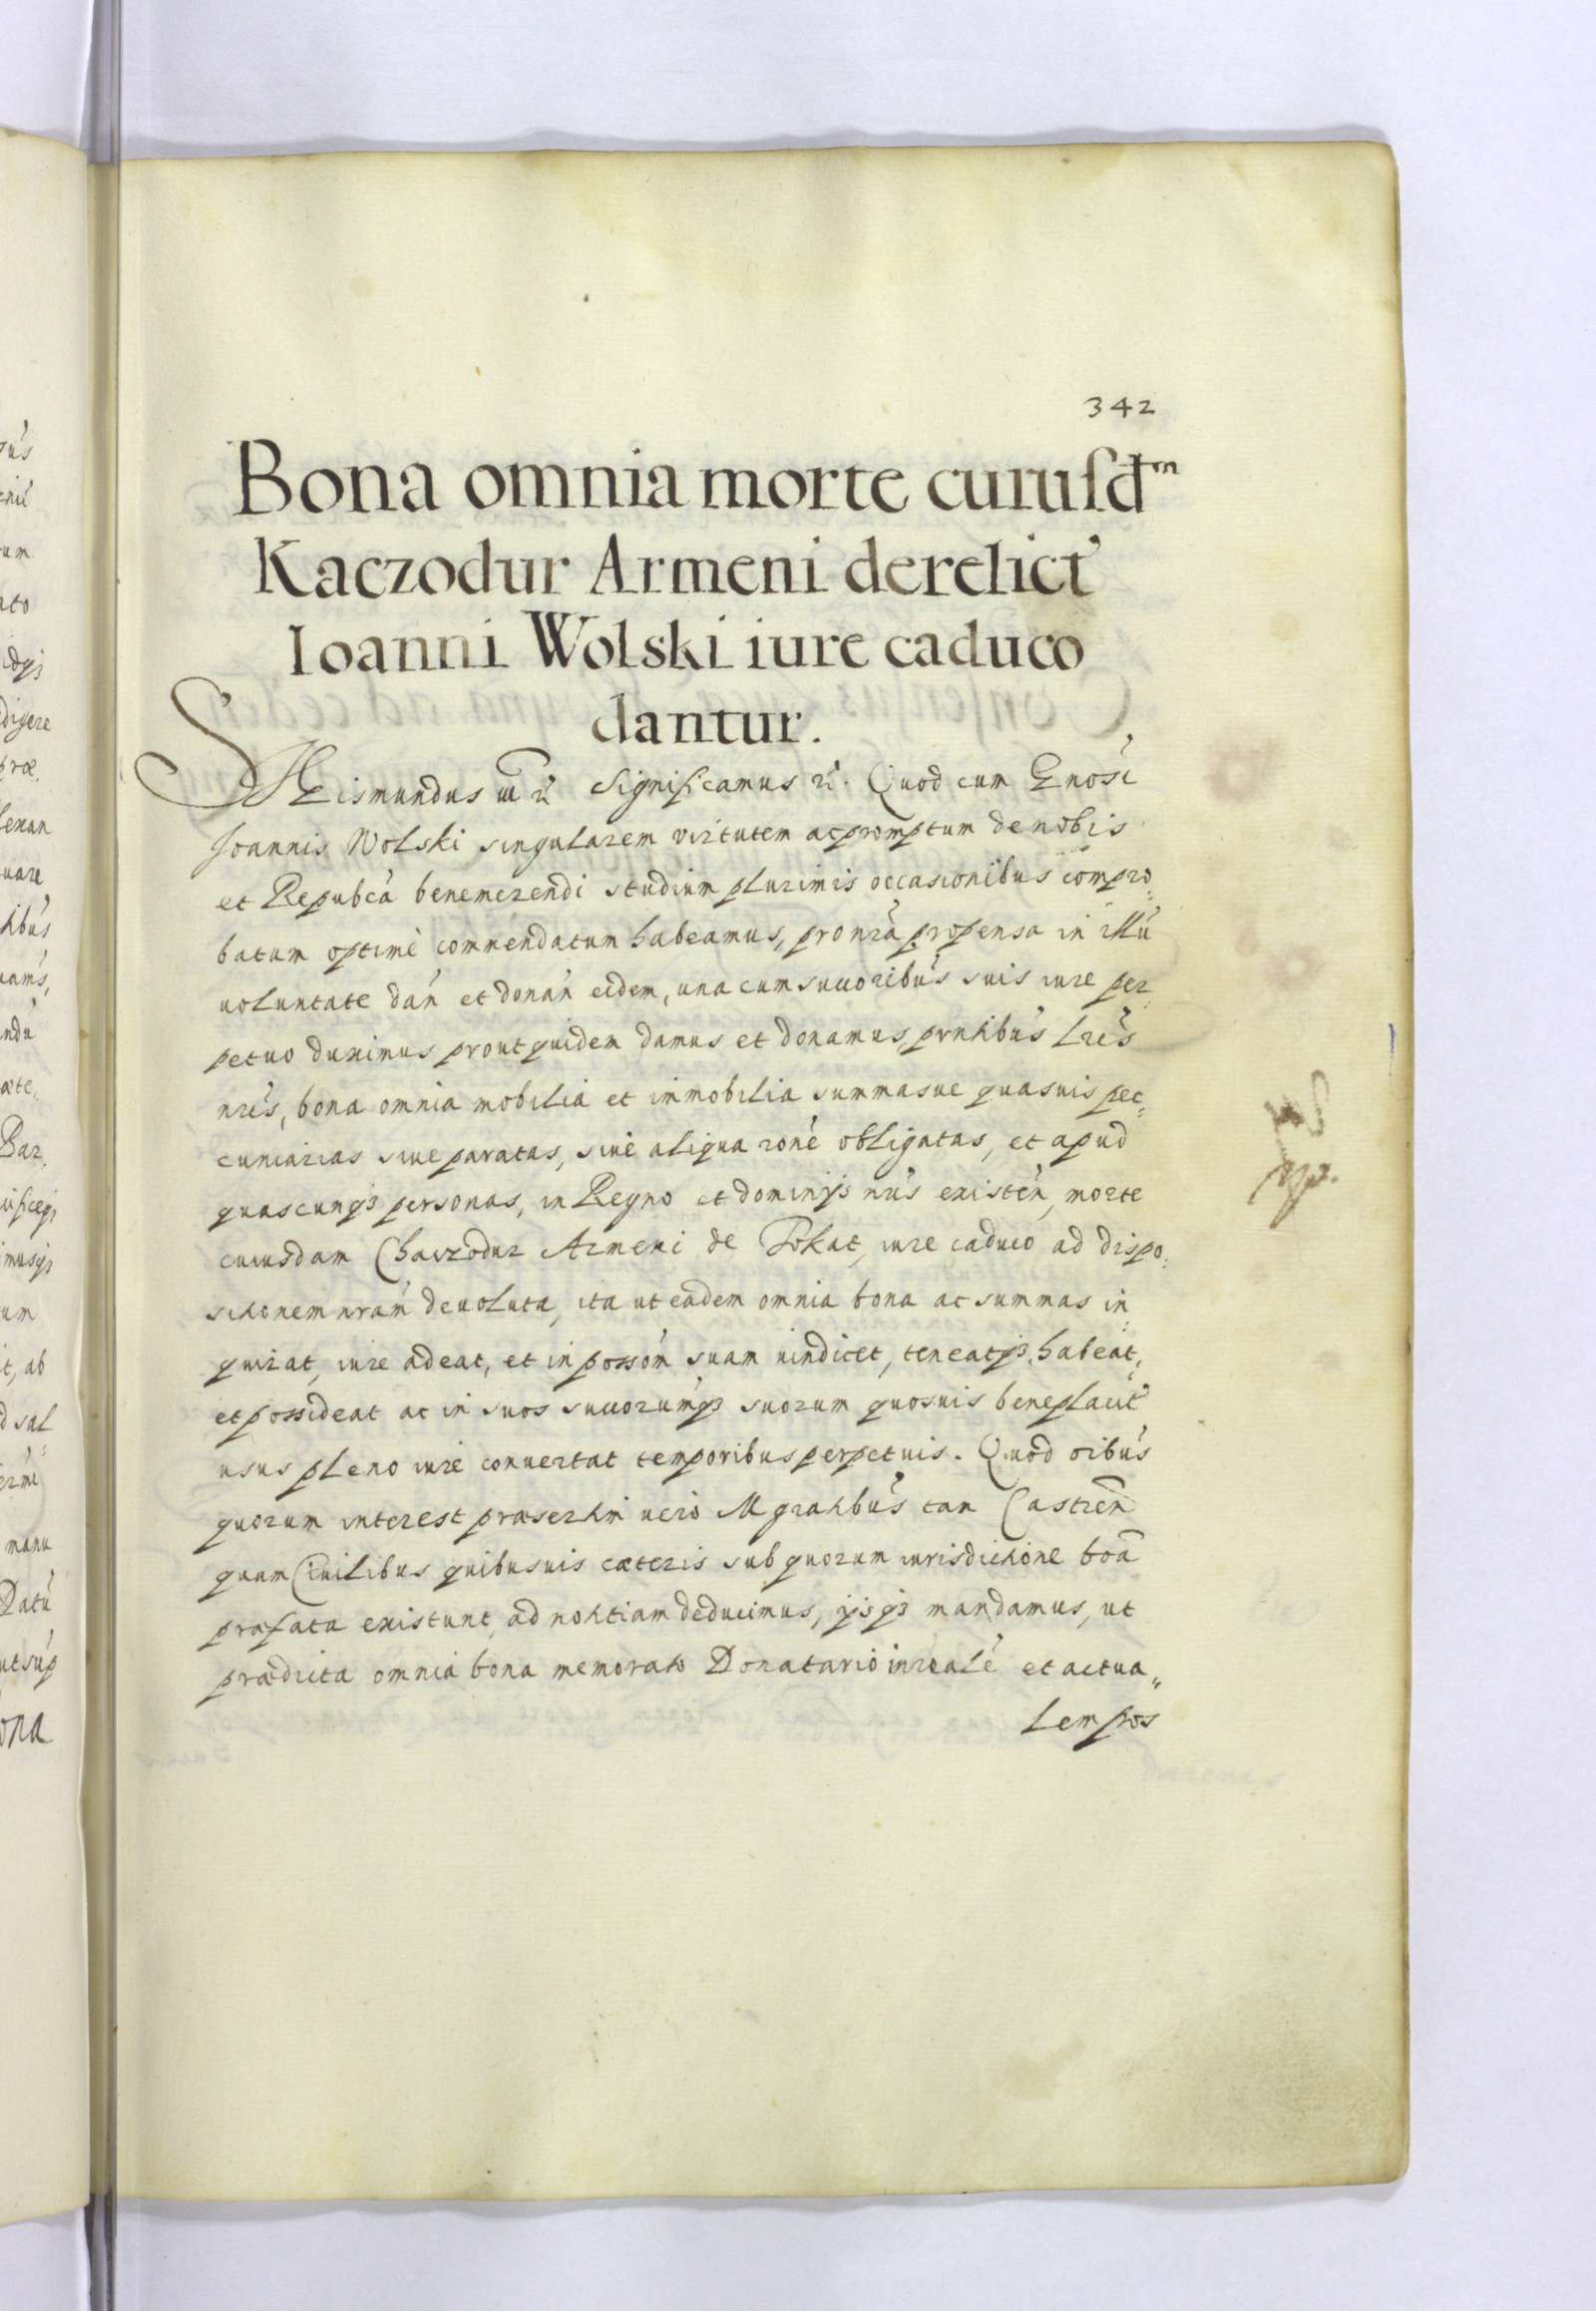 342
Bona omnia morte cuiusd̄m
Kaczodur Armeni derelict'
Ioanni Wolski iure caduco
dantur.
Sigismundus III etc̃ Significamus etc̃. Quod cum Gnosi
Joannis Wolski singularem virtutem ac promptum de nobis
et Repubcà benemerendi studium plurimis occasionibus compro„
batum optimè commendatum habeamus, pro nrã propensa in illũ
voluntate dań et donań eidem, una cum succoribuś suis iure per„
petuo duximus prout quidem damus et donamus, prntibuś Lreś
nreś, bona omnia mobilia et immobilia summasue quasuis pec„
cuniarias siue paratas, siue aliqua roné obligatas, et apud
quascunq3 personas, in Regno et dominijs nris existeń, morte
cuiusdam Chaczodur Armeni de Tokat, iure caduco ad dispo„
sitionem nram deuoluta, ita ut eadem omnia bona ac summas in„
quirat, iure adeat, et in posśom suam uindicet, teneatq3, habeat,
et possideat ac in suos succorumq3 suorum quosuis beneplacit'
usus pleno iure conuertat temporibus perpetuis. Quod oibuś
quorum interest praesertim uero Mgratibuś tam Castreń
quam Ciuilibus quibusuis caeteris sub quorum iurisdictione boã
praefata existunt, ad notitiam deducimus, ijsq3 mandamus, ut
praedicta omnia bona memorato Donatario in realé et actua„
lem pos